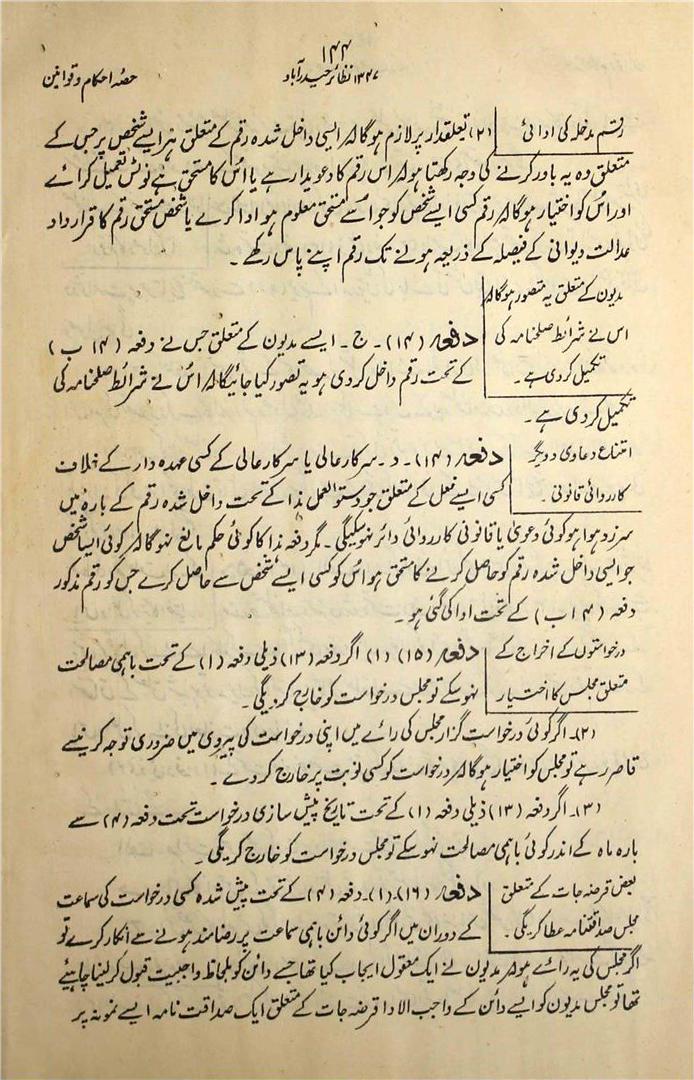 ۱۴۴
۱۳۴۷ نظائر حیدرآباد
حصہ احکام و قوانین
رقم مدخلہ کی ادائی
(۲) تعلقدار پر لازم ہوگا کہ ایسی داخل شدہ رقم کے متعلق ہر ایسے شخص پر جس کے
متعلق وہ یہ باور کرنے کی وجہ رکھتا ہو کہ اس رقم کا دعویدار ہے یا اس کا مستحق ہے نوٹس تعمیل کرائے
اور اس کو اختیار ہوگا کہ رقم کسی ایسے شخص کو جو اسے مستحق معلوم ہو ادا کرے یا شخص مستحق رقم کا قرارداد
عدالت دیوانی کے فیصلہ کے ذریعہ ہونے تک رقم اپنے پاس رکھے ۔
مدیون کے متعلق یہ متصور ہوگا کہ
اس نے شرائط صلحنامہ کی
تکمیل کردی ہے ۔
دفعہ (۱۴) ۔ ج ۔ ایسے مدیون کے متعلق جس نے دفعہ (۱۴ ب)
کے تحت رقم داخل کردی ہو یہ تصور کیا جائیگا کہ اس نے شرائط صلحنامہ کی
تکمیل کردی ہے ۔
امتناع دعاوی و دیگر
کارروائی قانونی ۔
دفعہ (۱۴) ۔ د ۔ سرکارعالی یا سرکارعالی کے کسی عہدہ دار کے خلاف
کسی ایسے فعل کے متعلق جو دستورالعمل ہذا کے تحت داخل شدہ رقم کے بارہ میں
سرزد ہوا ہو کوئی دعویٰ یا قانونی کارروائی دائر نہوسکیگی ۔ مگر دفعہ ہذا کا کوئی حکم مانع نہوگا کہ کوئی ایسا شخص
جو ایسی داخل شدہ رقم کو حاصل کرنے کا مستحق ہو اس کو کسی ایسے شخص سے حاصل کرے جس کو رقم مذکور
دفعہ (۱۴ ب) کے تحت ادا کی گئی ہو ۔
درخواستوں کے اخراج کے
متعلق مجلس کا اختیار
دفعہ (۱۵) (۱) اگر دفعہ (۱۳) ذیلی دفعہ (۱) کے تحت باہمی مصالحت
نہوسکے تو مجلس درخواست کو خارج کردیگی ۔
(۲)۔ اگر کوئی درخواست گزار مجلس کی رائے میں اپنی درخواست کی پیروی میں ضروری توجہ کرنیسے
قاصر رہے تو مجلس کو اختیار ہوگا کہ درخواست کو کسی نوبت پر خارج کردے ۔
(۳)۔ اگر دفعہ (۱۳) ذیلی دفعہ (۱) کے تحت تاریخ پیش سازی درخواست تحت دفعہ (۴) سے
بارہ ماہ کے اندر کوئی باہمی مصالحت نہوسکے تو مجلس درخواست کو خارج کریگی ۔
بعض قرضہ جات کے متعلق
مجلس صداقتنامہ عطا کریگی ۔
دفعہ (۱۶)۔(۱)۔ دفعہ (۴) کے تحت پیش شدہ کسی درخواست کی سماعت
کے دوران میں اگر کوئی دائن باہمی سماعت پر رضامند ہونے سے انکار کرے تو
اگر مجلس کی یہ رائے ہو کہ مدیون نے ایک معقول ایجاب کیا تھا جسے دائن کو بلحاظ واجبیت قبول کرلینا چاہیئے
تھا تو مجلس مدیون کو ایسے دائن کے واجب الادا قرضہ جات کے متعلق ایک صداقت نامہ ایسے نمونہ پر